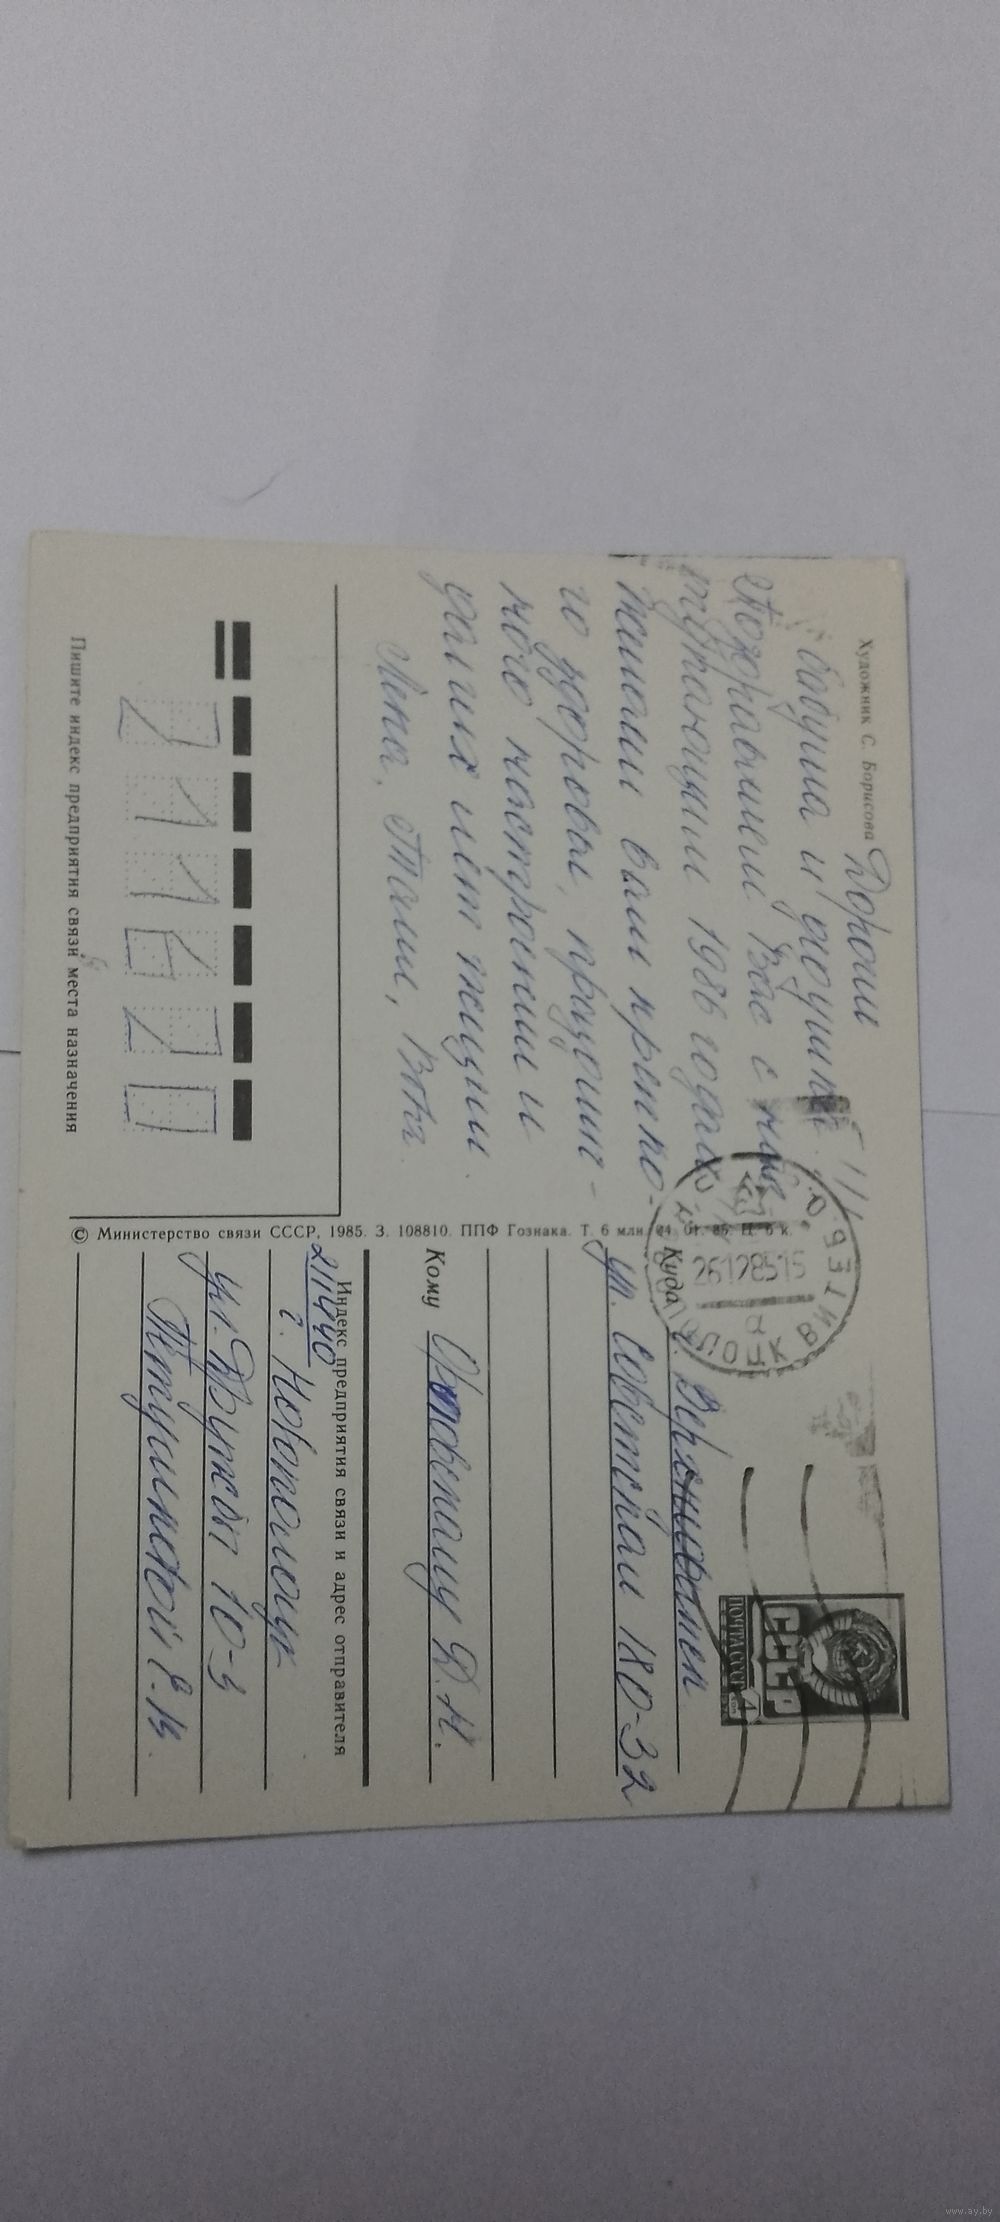 Художник С. Борисова
Дорогии
бабушка и дедушка
Поздравляем Вас с нас
тупающим 1986 годом
Желаем вам крепко-
го здоровья, празднич-
ного настроения и
долгих лет жизни.
Лена, Таня, Вова.
211620
Пишите индекс предприятия связи места назначения
© Министерство связи СССР, 1985. З. 108810. ППФ Гознака. Т. 6 млн. 24. 01. 85. Ц. 6 к.
ПОЧТА СССР
СССР
4
26128515
ПОЛОЦК ВИТЕБ. О.
а
Куда г. Верхнедвинск
ул. Советская 180-32
Кому Д. Н.
Индекс предприятия связи и адрес отправителя
211440
г. Новополоцк
ул. Дружбы 10-3
Е. В.
www.ay.by